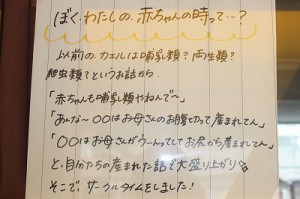 ぼく・わたしの、赤ちゃんの時って…?
以前の、カエルは哺乳類?両生類?
爬虫類?というお話から
「赤ちゃんも哺乳類やねんで〜」
「あんな〜〇〇はお母さんのお腹切って産まれてん」
「〇〇はお母さんがうーんってしてお尻から産まれてん」
と、自分たちの産まれた話で大盛り上がり
そこで、サークルタイムをしました!